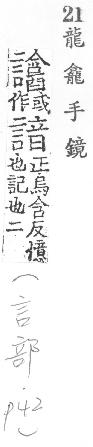 21龍龕手鏡
或作諳正烏含反憶也記也二
(言部·p42)